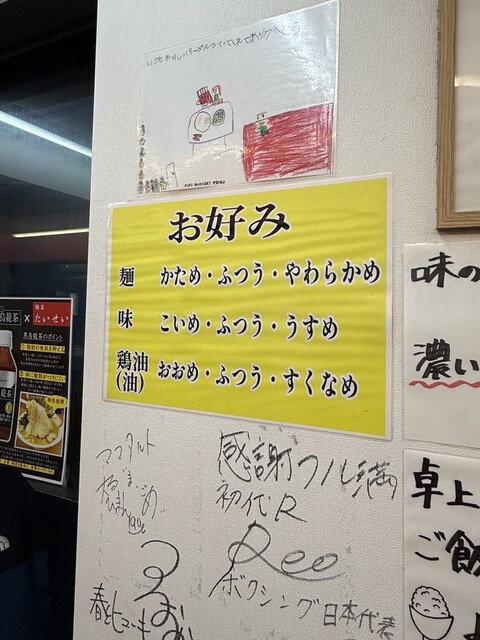 いつもおいしいラーメンつくってくれてありがとう
お好み
麺 かため・ふつう・やわらかめ
味 こいめ・ふつう・うすめ
鶏油(油) おおめ・ふつう・すくなめ
烏龍茶 × たいせい
黒烏龍茶のポイント
味の
濃い
卓上
ご飯
ママタルト
感謝フル満
初代R
Reo
ボクシング日本代表
春とヒコーキ